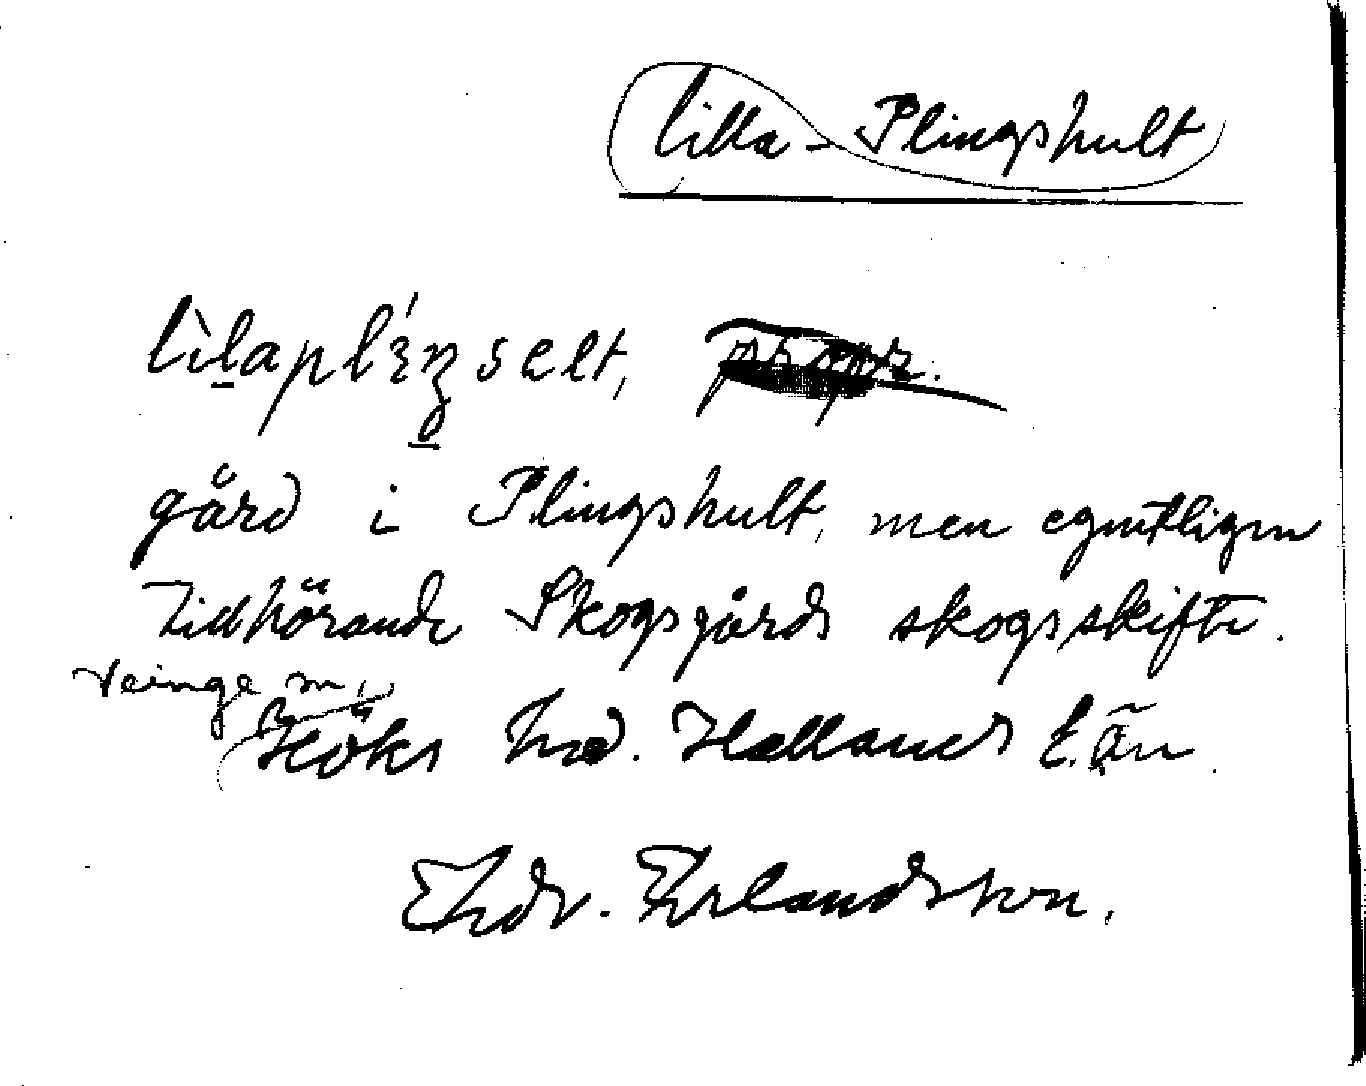 lilla-Plingshult
gård i Plingshult, men egentligen
tillhörande Skogsgårds skogsskifte.
Veinge sn,
Höks hrd. Hallands län.
Edv. Erlandsson.